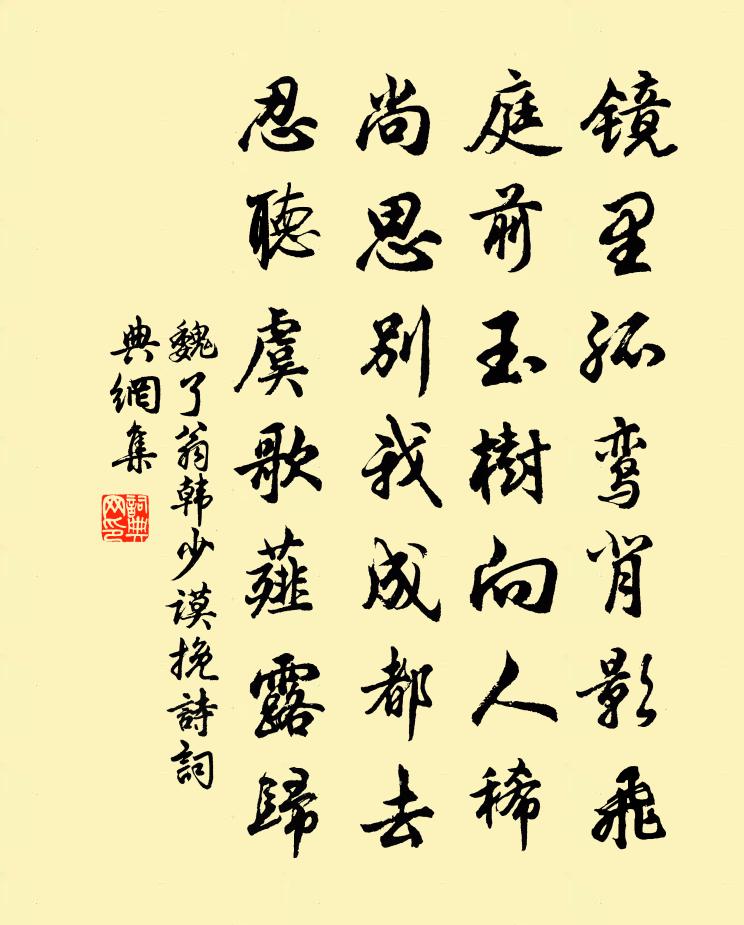 镜里孤鸾肖影飛
庭前玉樹向人稀
尚思别我成都去
忍聽虞歌薤露歸
魏了翁韩少谟挽詩詞
典網集
詞典網印